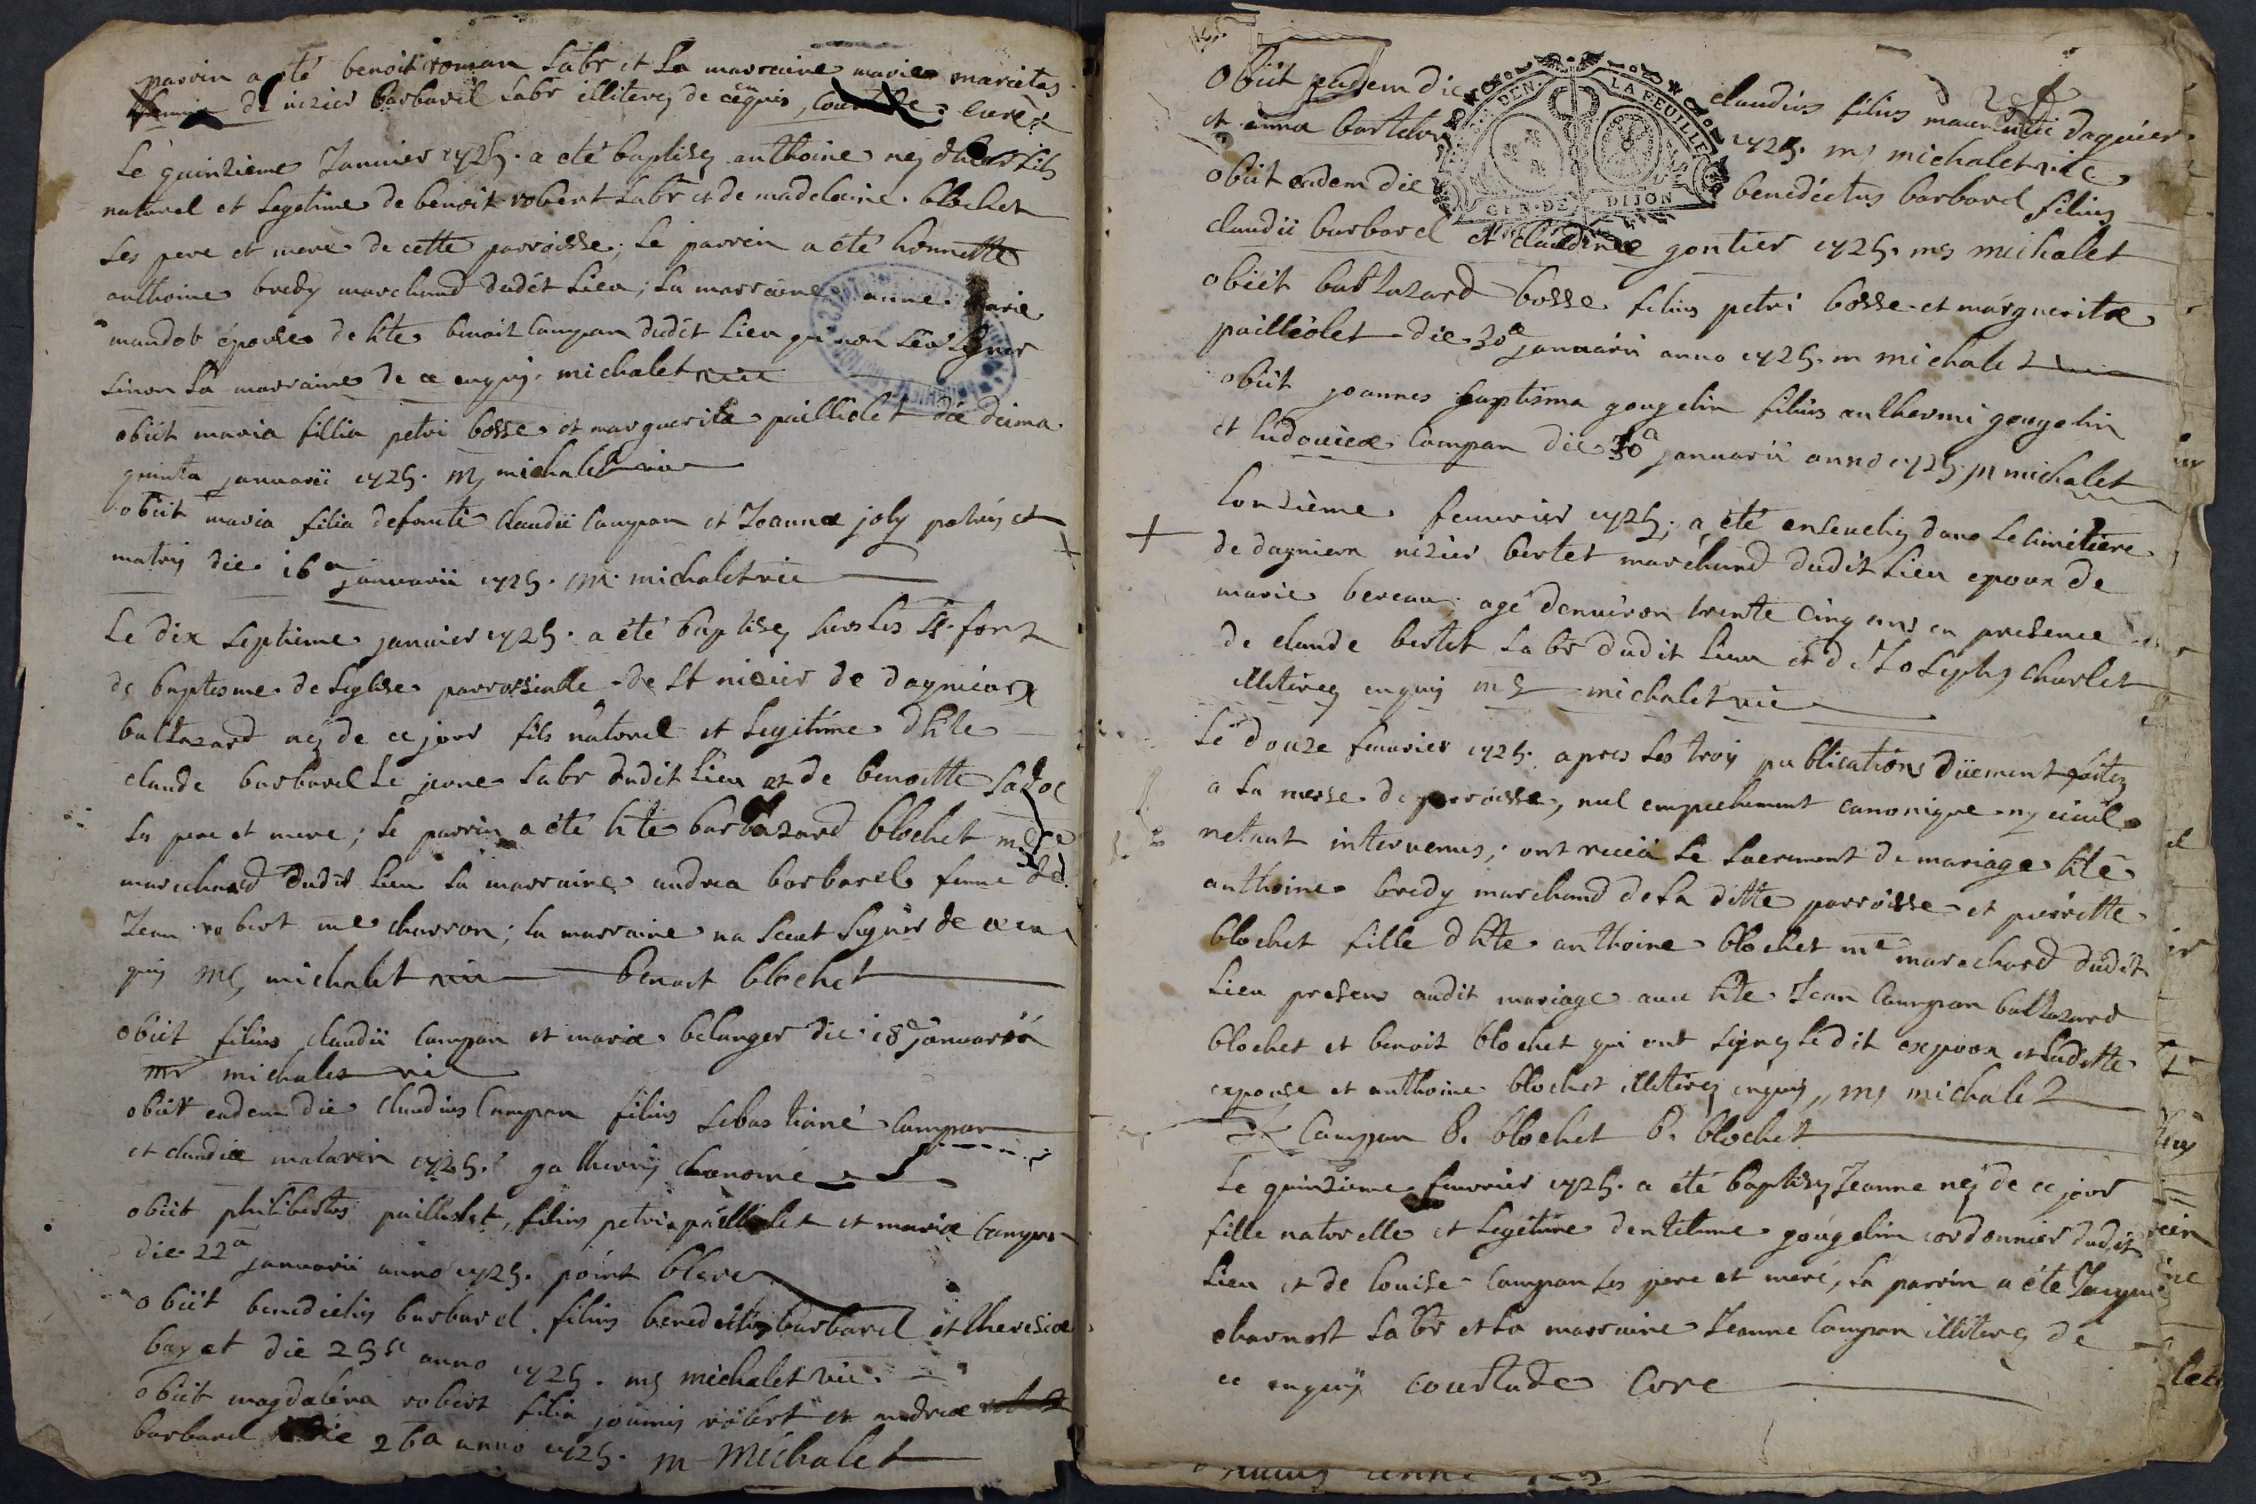 parrin a été benoit roman labr et La marraine marie mariétas
femme de nizier barbarel labr illiterez de ce enquis, courtade curé
Le quinzieme Januier 1725. a été baptisez anthoine nez dhier fils
naturel et Legetime de benoit robert labr et de madelaine blochet
ses pere et mere de cette parroisse; Le parrin a été honnette
anthoine bredy marchand dudit Lieu; La marraine anne marie
mandot épouse de hte benoit Campan dudit Lieu qui non sceu signer
sinon La marraine de ce enquis. michalet vic
obiit maria fillia petri bosse et marguerita pailliolet die deima
quinta januarii 1725. m michalet vic
obiit maria filia defoncti Claudii Campan et Joannæ joly patris et
matris die 16a januarii 1725. M. michalet vic
Le dix septieme januier 1725. a été baptisez sur les St. font
de baptesme de Leglise parrossialle de St nizier de dagnieux
baltazard nez de ce jour fils naturel et Legitime dhte
claude barbarel Le jeune labr dudit Lieu et de benoitte
ses pere et mere; Le parrin a été hte barbazard blochet me
marechard dudit Lieu La marraine andrea barbarel femme de
Jean robert me charron; La marraine na sceut signer de ce en
quis M michalet vic benoit blochet
obiit filius claudii Campan et mariæ belanger die 18a januarii
mr michalet vic
obiit eadem die claudius Campan filius sebastiani Campan
et claudiæ matarin 1725. chanoine
obiit philibertus pailliolet, filius petri pailliolet et mariæ Campan
die 22a januarii anno 1725. point blanc
obiit benedictus barbarel filius benedictus barbarel et theresiæ
bayet die 25a anno 1725. m michalet vic.
obiit magdalena robert filia joannis robert et andreæ
barbarel die 26a anno 1725. m Michalet
obiit eadem die claudius filius mauritii daguier
et anna bartelon 1725. m michalet vic
obiit eadem die benedictus barbarel filius
claudii barbarel et claudinæ gontier 1725. m michalet
GEN. DEN. LA FEUILLE
GEN. DE DIJON
obiit baltazard bosse filius petri bosse et margueritæ
pailleolet die 30a januarii anno 1725. m michalet
obiit joannes baptisma gougelin filius anthermi gougelin
et Ludouicæ Campan die 30a januarii anno 1725. m michalet
Lonzième feuurier 1725; a été enseuelis dans Le cimétiere
de dagnieu nizier bertet marchand dudit Lieu epoux de
marie bereau; agé denuiron trente Cinq ans en presence
de claude bertet labr dudit Lieu et de Joseph charlet
illiterez enquis m michalet vic
Le douze feuurier 1725. apres Les trois publications düement faites
a La messe de parroisse, nul empechement canonique ny ciuil
netant interuenus; ont receu Le sacrement de mariage hte
anthoine bredy marchand de La ditte parroisse et pierrette
blochet fille dhte anthoine blochet me marechard dudit
Lieu presens audit mariage auec hte Jean Campan baltazard
blochet et benoit blochet qui ont signez Ledit expoux et Laditte
expouse et anthoine blochet illiterez enquis, m michalet
Campan B. blochet B. blochet
Le quinzieme feuurier 1725. a été baptisez Jeanne nez de ce jour
fille naturelle et Legitime dentelme gougelin cordonnier dudit
Lieu et de Louise Campan ses pere et mere, Le parrin a été Jacque
charnost labr et La marraine Jeanne Campan illiterez de
ce enquis courtade Cure